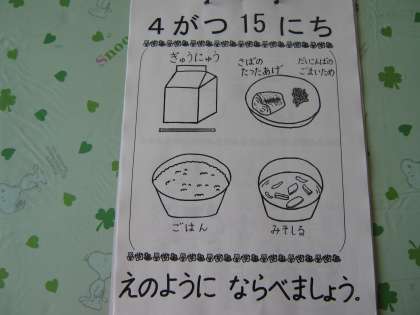 4がつ15にち
ぎゅうにゅう
さばの
たったあげ
だいこんばの
ごまいため
ごはん
みそしる
えのように ならべましょう。
Snoo